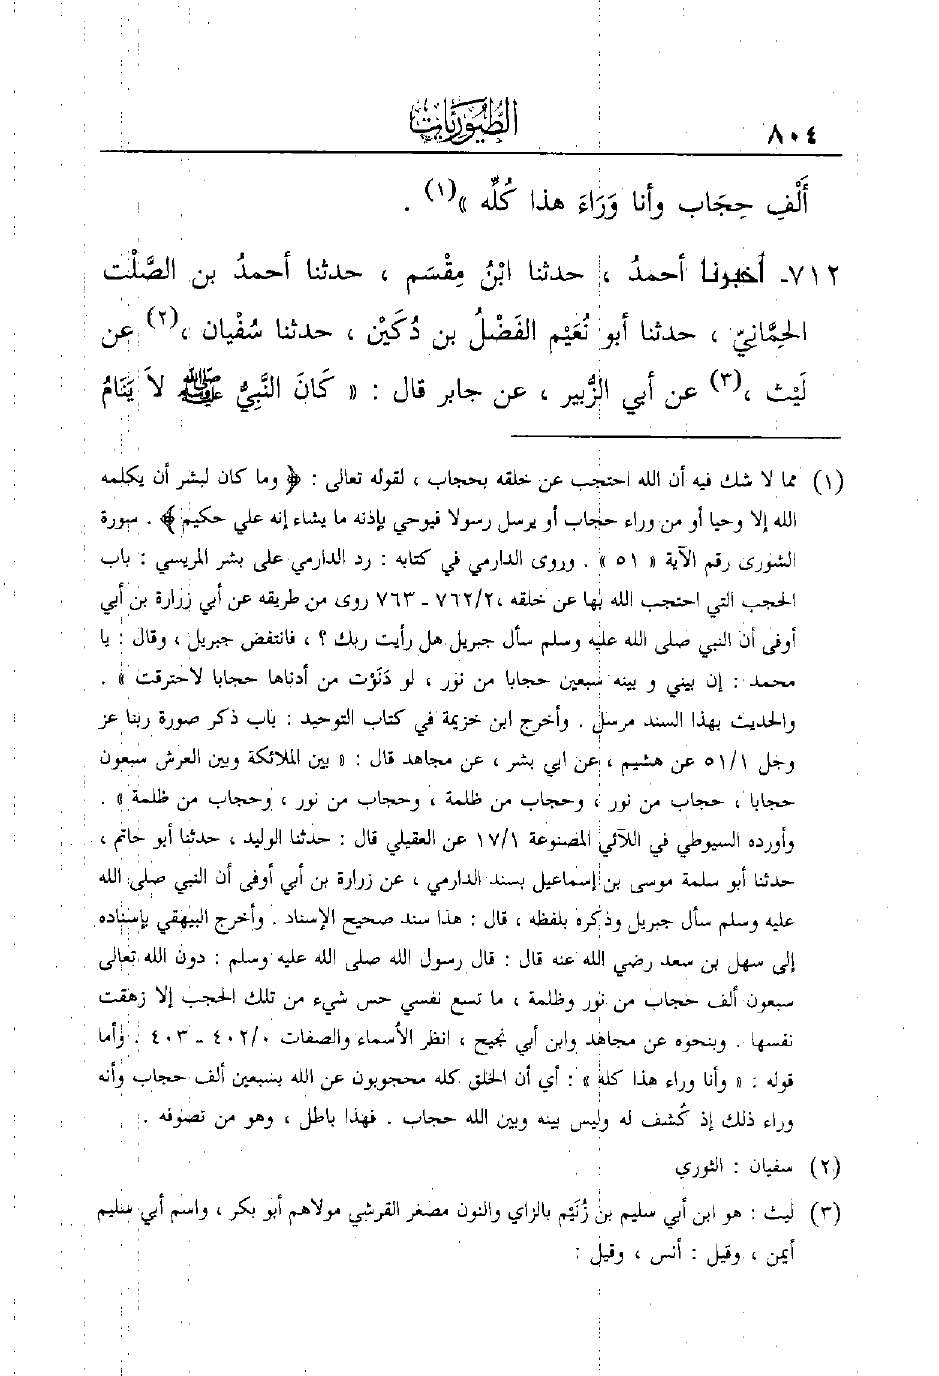 ٨٠٤
الطُّيُورِيَّات
أَلْفِ حِجَاب وأنا وَرَاءَ هذا كُلِّه »(١) .
٧١٢- أخبرنا أحمدُ ، حدثنا ابْنُ مِقْسَم ، حدثنا أحمدُ بن الصَّلْت
الحِمَّانيّ ، حدثنا أبو نُعَيْم الفَضْلُ بن دُكَيْن ، حدثنا سُفْيان ،(٢) عن
لَيْث ،(٣) عن أبي الزُّبير ، عن جابر قال : « كَانَ النَّبِيُّ ﷺ لاَ يَنَامُ
(١) مما لا شك فيه أن الله احتجب عن خلقه بحجاب ، لقوله تعالى : ﴿ وما كان لبشر أن يكلمه
الله إلا وحيا أو من وراء حجاب أو يرسل رسولا فيوحي بإذنه ما يشاء إنه علي حكيم ﴾ . سورة
الشورى رقم الآية « ٥١ » . وروى الدارمي في كتابه : رد الدارمي على بشر المريسي : باب
الحجب التي احتجب الله بها عن خلقه ،٧٦٢/٢ - ٧٦٣ روى من طريقه عن أبي زرارة بن أبي
أوفى أن النبي صلى الله عليه وسلم سأل جبريل هل رأيت ربك ؟ ، فانتفض جبريل ، وقال : يا
محمد : إن بيني و بينه سبعين حجابا من نور ، لو دَنَوْت من أدناها حجابا لاحترقت » .
والحديث بهذا السند مرسل . وأخرج ابن خزيمة في كتاب التوحيد : باب ذكر صورة ربنا عز
وجل ٥١/١ عن هشيم ، عن ابي بشر ، عن مجاهد قال : « بين الملائكة وبين العرش سبعون
حجابا ، حجاب من نور ، وحجاب من ظلمة ، وحجاب من نور ، وحجاب من ظلمة » .
وأورده السيوطي في اللآلي المصنوعة ١٧/١ عن العقيلي قال : حدثنا الوليد ، حدثنا أبو حاتم ،
حدثنا أبو سلمة موسى بن إسماعيل بسند الدارمي ، عن زرارة بن أبي أوفى أن النبي صلى الله
عليه وسلم سأل جبريل وذكره بلفظه ، قال : هذا سند صحيح الإسناد . وأخرج البيهقي بإسناده
إلى سهل بن سعد رضي الله عنه قال : قال رسول الله صلى الله عليه وسلم : دون الله تعالى
سبعون ألف حجاب من نور وظلمة ، ما تسع نفسي حس شيء من تلك الحجب إلا زهقت
نفسها . وبنحوه عن مجاهد وابن أبي نجيح ، انظر الأسماء والصفات ٤٠٢/٠ - ٤٠٣ . وأما
قوله : « وأنا وراء هذا كله » : أي أن الخلق كله محجوبون عن الله بسبعين ألف حجاب وأنه
وراء ذلك إذ كُشف له وليس بينه وبين الله حجاب . فهذا باطل ، وهو من تصوفه .
(٢) سفيان : الثوري
(٣) ليث : هو ابن أبي سليم بن زُنَيْم بالزاي والنون مصغر القرشي مولاهم أبو بكر ، واسم أبي سليم
أيمن ، وقيل : أنس ، وقيل :